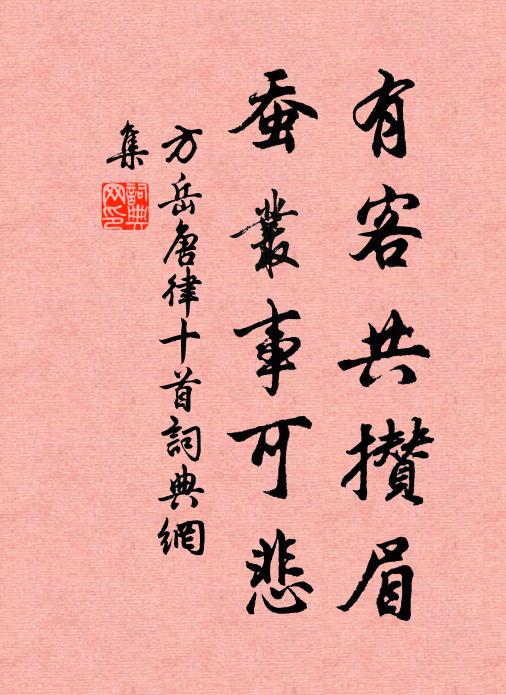 有客共攒眉
蚕叢事可悲
方岳唐律十首詞典網
集
詞典网印